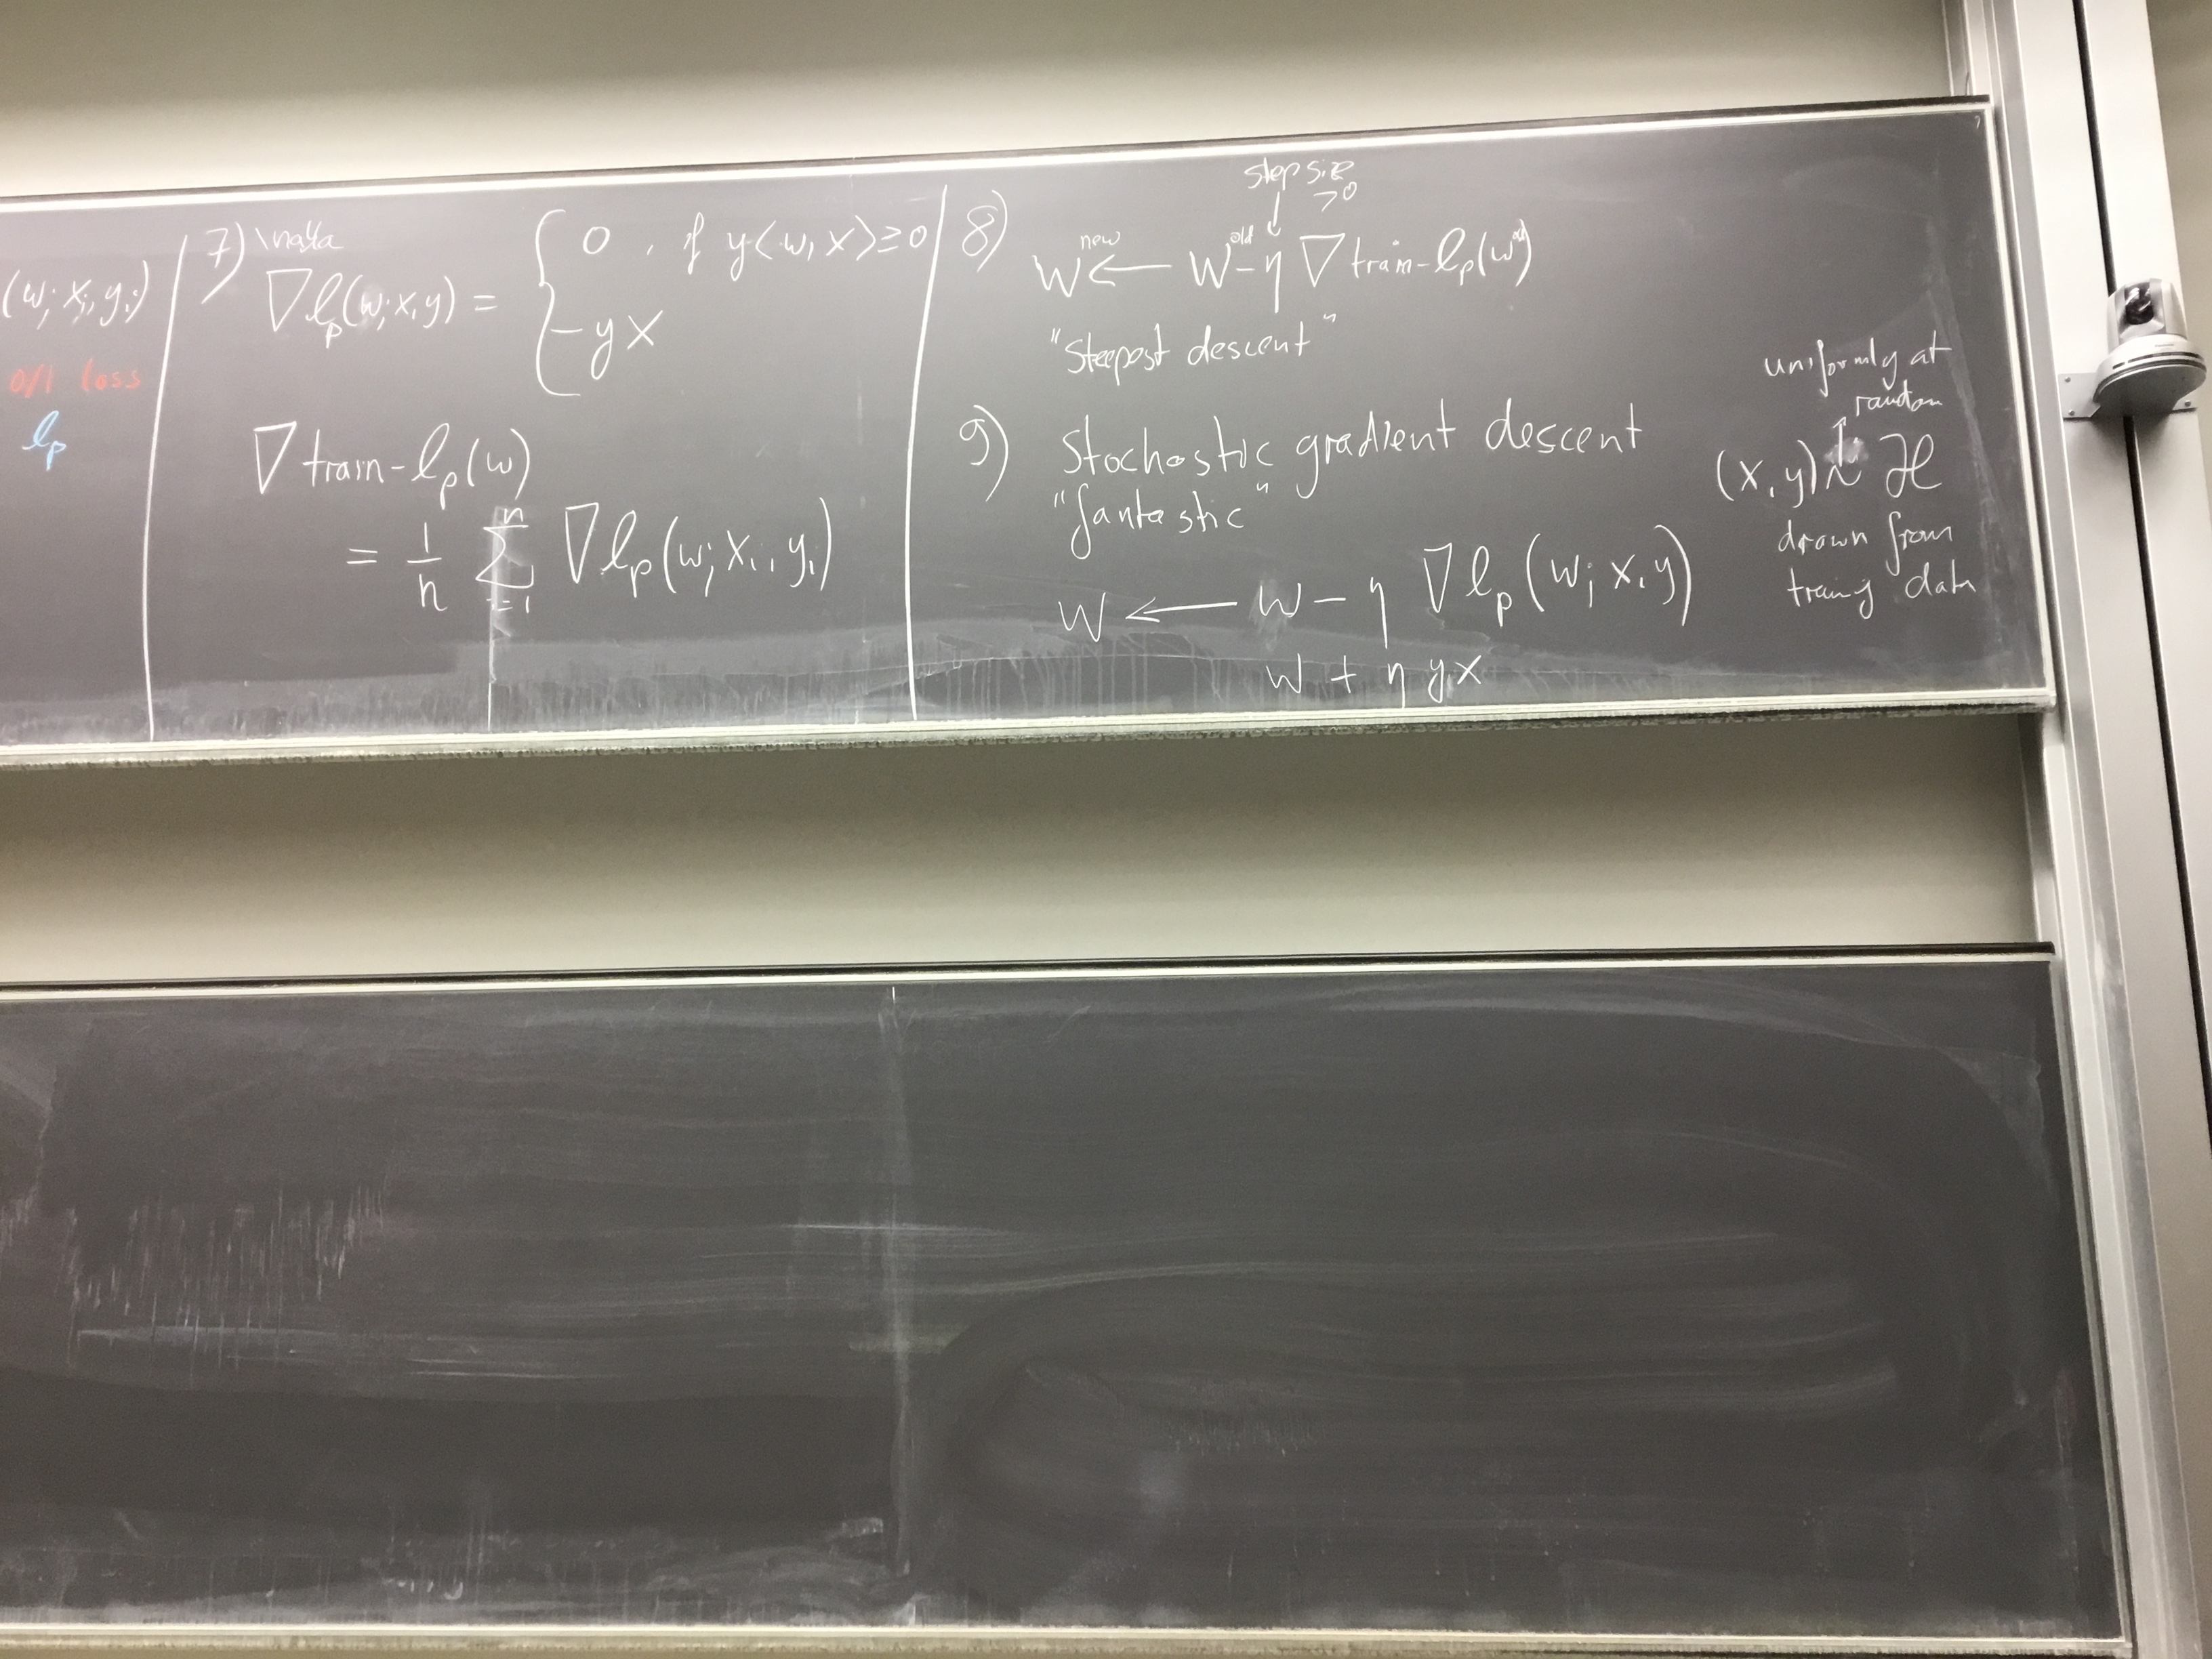 (w; xᵢ, yᵢ)
0/1 loss
ℓₚ
7) \nabla
∇ℓₚ(w; x, y) = { 0 , if y⟨w, x⟩ ≥ 0
-yx
∇ train-ℓₚ(w)
= 1/n Σᵢ₌₁ⁿ ∇ℓₚ(w; xᵢ, yᵢ)
step size
> 0
8) w^new ← w^old - η ∇ train-ℓₚ(w^old)
"Steepest descent"
9) Stochastic gradient descent
"fantastic"
w ← w - η ∇ℓₚ(w; x, y)
w + η yx
uniformly at
random
(x, y) ~ 𝓗
drawn from
traing data